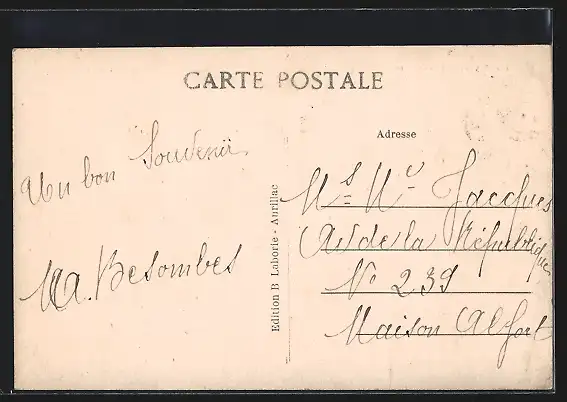 CARTE POSTALE
Un bon Souvenir
M A. Besombes
Edition B Laborie - Aurillac
Adresse
Ms Me Jacques
Av de la République
No 239
Maison Alfort